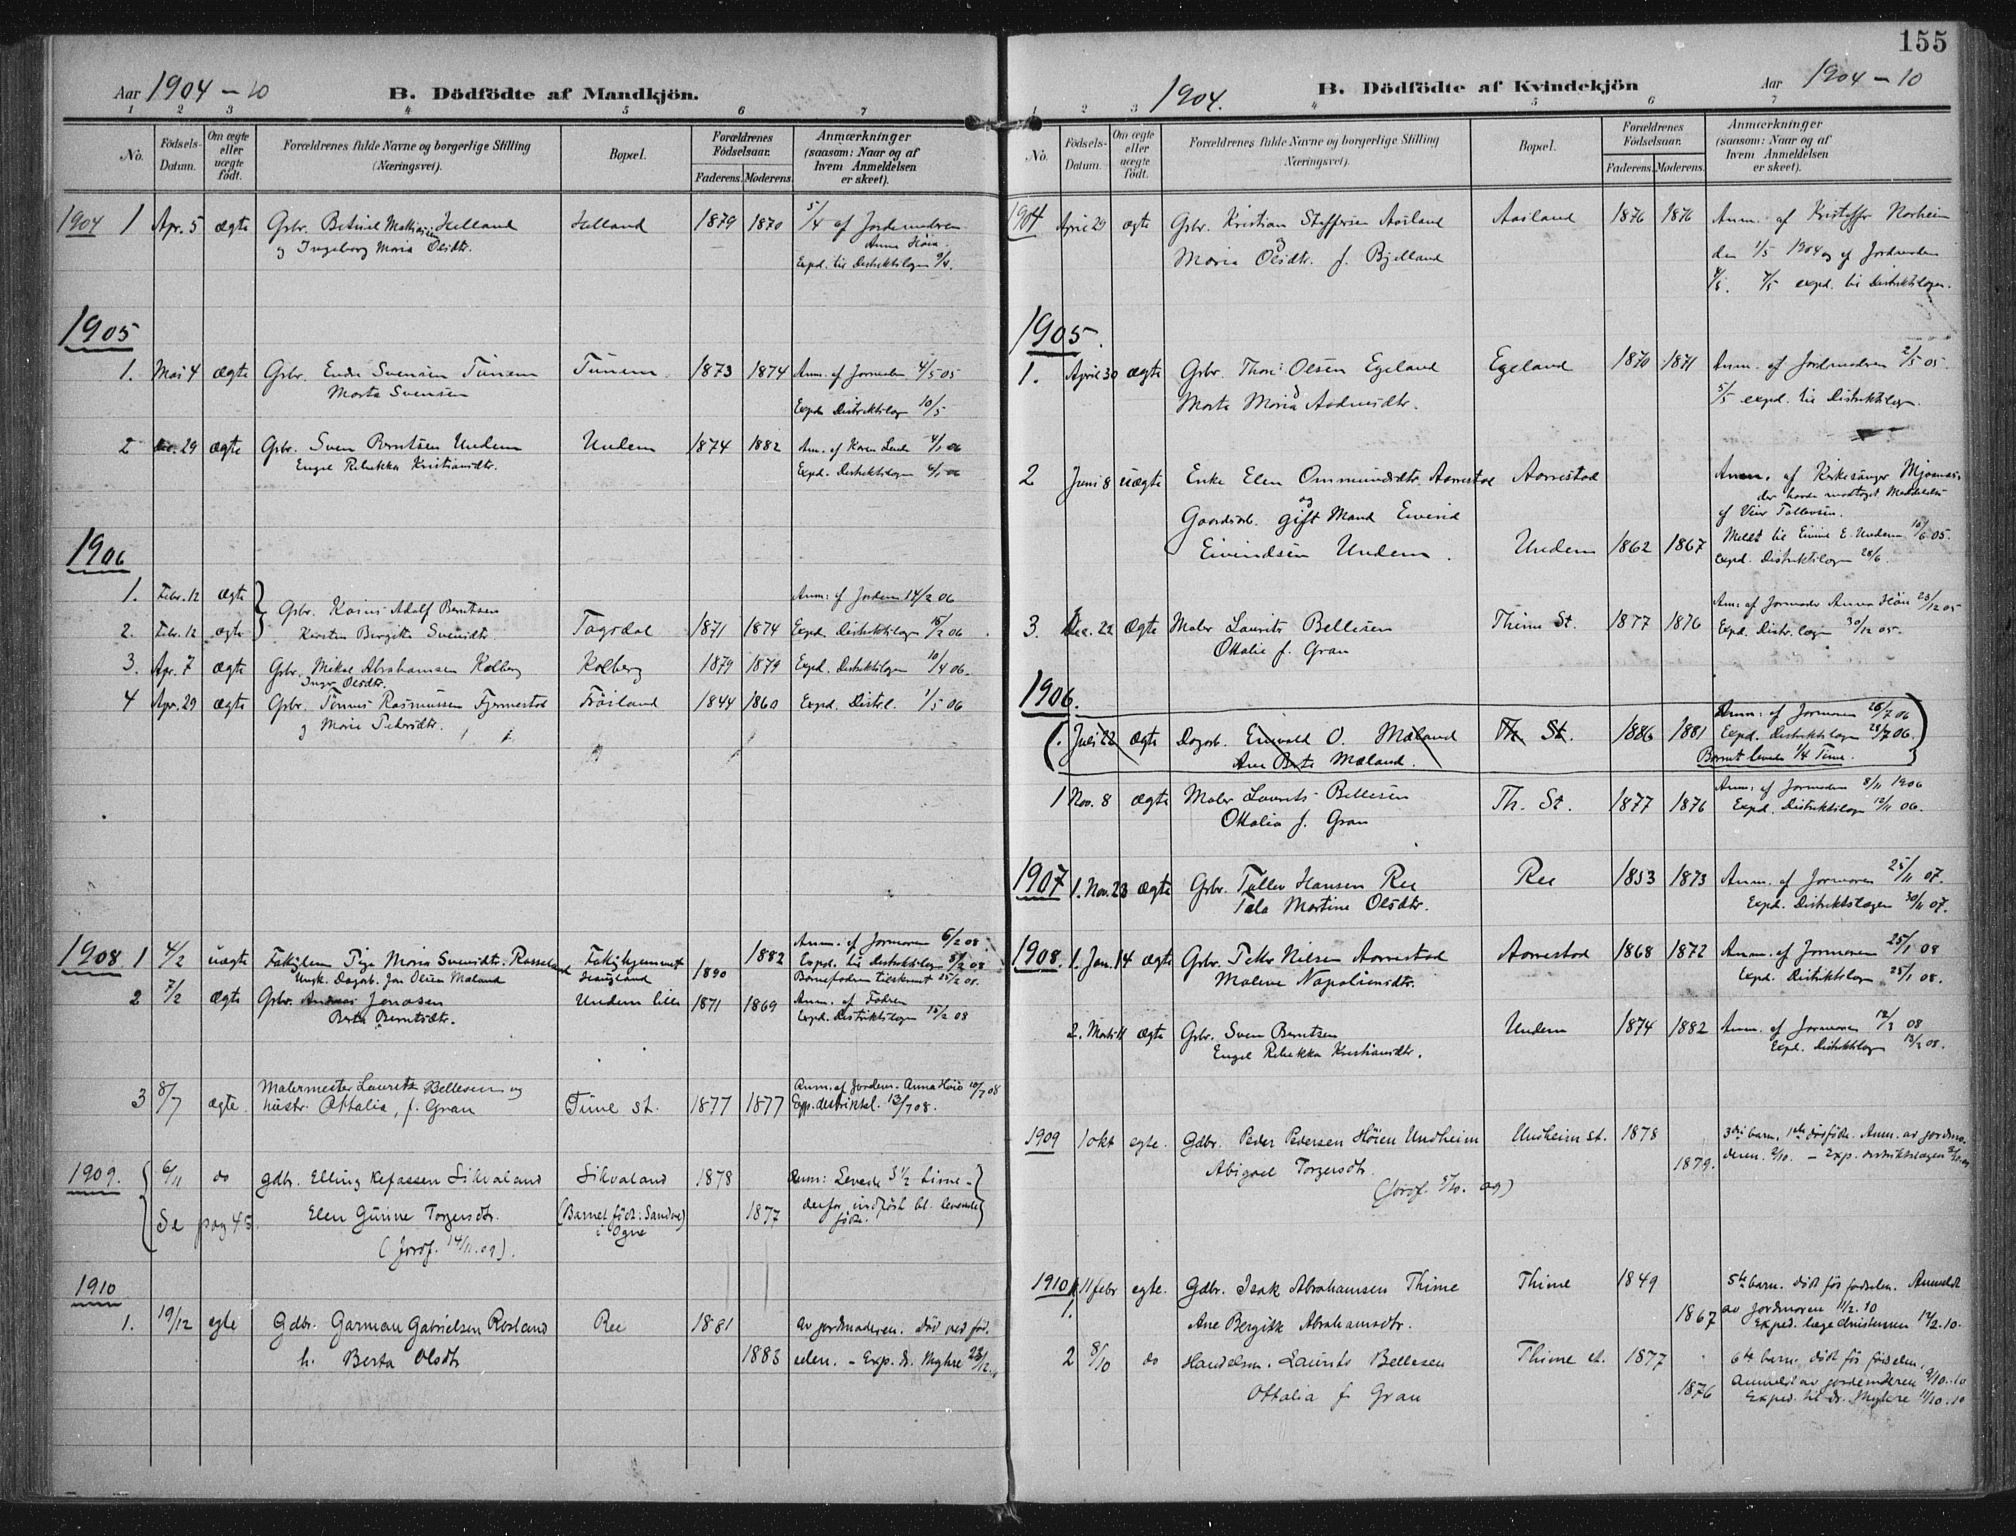 155
Aar 1904-10
B. Dödfödte af Mandkjön.
1 2 3 4 5 6 7
No.
Födsels-Datum.
Om ægte eller uægte födt.
Forældrenes fulde Navne og borgerlige Stilling
(Næringsvei).
Bopæl.
Forældrenes Födselsaar.
Faderens. Moderens.
Anmærkninger
(saasom: Naar og af
hvem Anmeldelsen
er skeet).
1904 1 Apr. 5 ægte Gbr. Helland Helland 1879 1870 5/4 af Jordmodren
og Ingeborg Maria Olsdtr. Anna Höia
Expd. til Distriktslægen 9/4.
1905
1. Mai 4 ægte Gbr. Endre Svensen Tunem Tunem 1873 1874 Anm. af Jormoden 4/5 05
Marta Svensen
Expd. Distriktslæg 10/5
2 Dec. 29 ægte Gbr. Sven Berntsen Undem Undem 1874 1882 Anm. af Karen 4/1 06
Engel Rebekka Kristiansdtr. Expd. Distriktslægen 4/1 06
1906
1. Febr. 12 ægte Anm: af Jordem 14/2 06
Gbr. Adolf Berntsen
2. Febr. 12 ægte Kirsten Birgitte Svendtr. Tagsdal 1871 1874 Expd. Distriktslægen 15/2 06
3. Apr. 7 ægte Gbr. Mikal Abrahamsen Kolberg Kolberg 1879 1879 Expd. Distriktslægen 10/4 06.
Olsdtr.
4 Apr. 29 ægte Gbr. Tönnes Rasmussen Fjermestad Fröiland 1844 1860 Expd. Distr.l. 1/5 06
og Marie Pedersdtr.
1908 1 4/2 uægte Pige Maria Svendtr. Rosseland 1882 Anm. af Jormoren 6/2 08
Ungk. Dagarb. Jon Olsen Mæland Haugland 1890 Expd. til Distriktslægen 8/2 08
2 7/2 ægte Gbr. Andreas Jonasen Undem lille 1871 1869 Anm. af Fadren
Berta Berntsdtr. Expd. Distriktslægen 10/2 08
3 8/7 ægte. Malermester Laurits Bellesen og
hustr. Ottalia, f. Gran Time st. 1877 1877 Anm. af Jordem. Anna Höio 10/7 08
Exp. distriktsl. 13/7 08.
1909. 6/11 do gdbr. Elling Kefassen Sikvaland Sikvaland 1878 Anm: Levede 3 1/2 time -
Se pag 45. Elen Gurine Torgersdtr. (Barnet födt: Sandve i Ogne 1877 derfor indfört bl. levende födte.
(Jordf. 14/11.09).
1910
1. 19/12 egte Gdbr. Garman Gabrielsen Rosland Ree 1881 av jordmoderen. Död ved föd.
h. Berta Olsdtr 1883 selen. - Exp. dr. Myhre 23/12.
Aar 1904-10
1904.
B. Dödfödte af Kvindekjön
1 2 3 4 5 6 7
No.
Födsels-Datum.
Om ægte eller uægte födt.
Forældrenes fulde Navne og borgerlige Stilling
(Næringsvei).
Bopæl.
Forældrenes Födselsaar.
Faderens. Moderens.
Anmærkninger
(saasom: Naar og af
hvem Anmeldelsen
er skeet).
1904 April 29 ægte Gbr. Kristian Steffensen Aasland Aasland 1876 1876 Anm. af Kristoffer Norheim
og
Maria Olsdtr. f. Bjelland den 1/5 1904 og af Jordmoden
7/5 expd. til Distriktslægen.
1905.
1. April 30 ægte Gbr. Olsen Egeland Egeland 1870 1871 Anm. af Jordmodren 2/5 05.
Marta Maria Aadnesdtr. 5/5 expd. til Distriktslægen.
2 Juni 8 uægte Enke Elen Ommundsdtr. Aarrestad Aarrestad Anm. af Kirkesanger
og
Gaardarb. gift Mand Eivind
af Tollevsen.
Eivindsen Undem. Undem 1862 1867 Meldt til Eivind E. Undem 16/6 05.
Expd. Distriktslægen 28/6.
3. Dec. 22 ægte Maler Laurits Bellesen Thime St. 1877 1876 Anm: af Jormoder Anna Höie 23/12 05
Ottalie f. Gran Expd. Distr. lægen 30/12 05.
1906.
(1. Juli 22 ægte Dagarb. Enevald O. Mæland Th. St. 1886 1881 Anm: af Jormoren 26/7 06
Ane Berta Mæland. Expd. Distriktslægen 28/7 06.
Barnet levede 1/4 Time.)
1 Nov. 8 ægte Maler Laurits Bellesen Th. St. 1877 1876 Anm: af Jormoden 8/11 1906
Ottalia f. Gran Expd. Distriktslægen 12/11 06.
1907 1. Nov. 23 ægte Gbr. Tollev Hansen Ree Ree 1853 1873 Anm. af Jormoren 25/11 07.
Tala Martine Olsdtr. Expd. Distriktslægen 30/11 07.
1908. 1. Jan. 14 ægte Gbr. Peder Nilsen Aarrestad Aarrestad 1868 1872 Anm. af Jormoren 25/1 08
Malene Napoleonsdtr. Expd. Distriktslægen 25/1 08.
2. Marts 11 ægte Gbr. Sven Berntsen Undem 1874 1882 Anm. af Jormoren 12/3 08
Engel Rebekka Kristiansdtr. Expd. Distriktslægen
1909 1 okt egte. Gdbr. Peder Pedersen Höien Undheim Undheim st. 1878 3die barn, 1ste dödfödte. Anm. av jordmo-
Abigael Torgersdtr. 1879. deren. 2/10. - Exp. distriktslægen
(Jordf. 5/10. 09)
1910 1. 11 febr egte. Gdbr. Isak Abrahamsen Thime Thime 1849 5te barn. Död för födselen. Anmeldt
Ane Bergitte Abrahamsdtr. 1867 av jordmoren 11/2.10
Exped. lege 14/2.10.
2 8/10 do Handelsm. Laurits Bellesen Thime st. 1877 6te barn. död för födselen.
Ottalia f. Gran 1876 Anmeldt av jordemoderen 9/10.10
Exped. til dr. Myhre 11/10.10